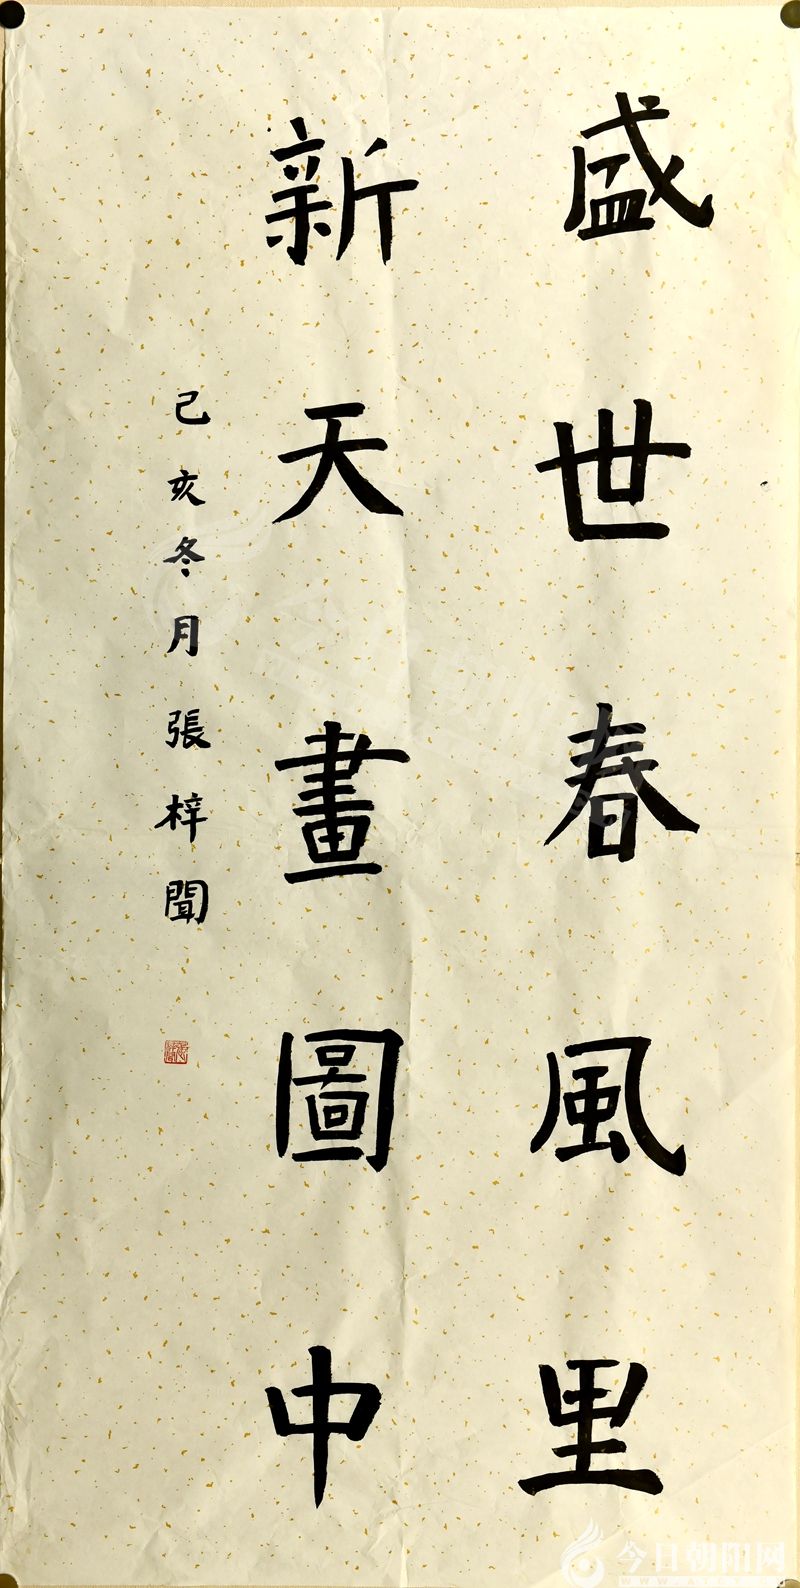 盛世春風里
新天畫圖中
己亥冬月張梓聞
今日朝阳网